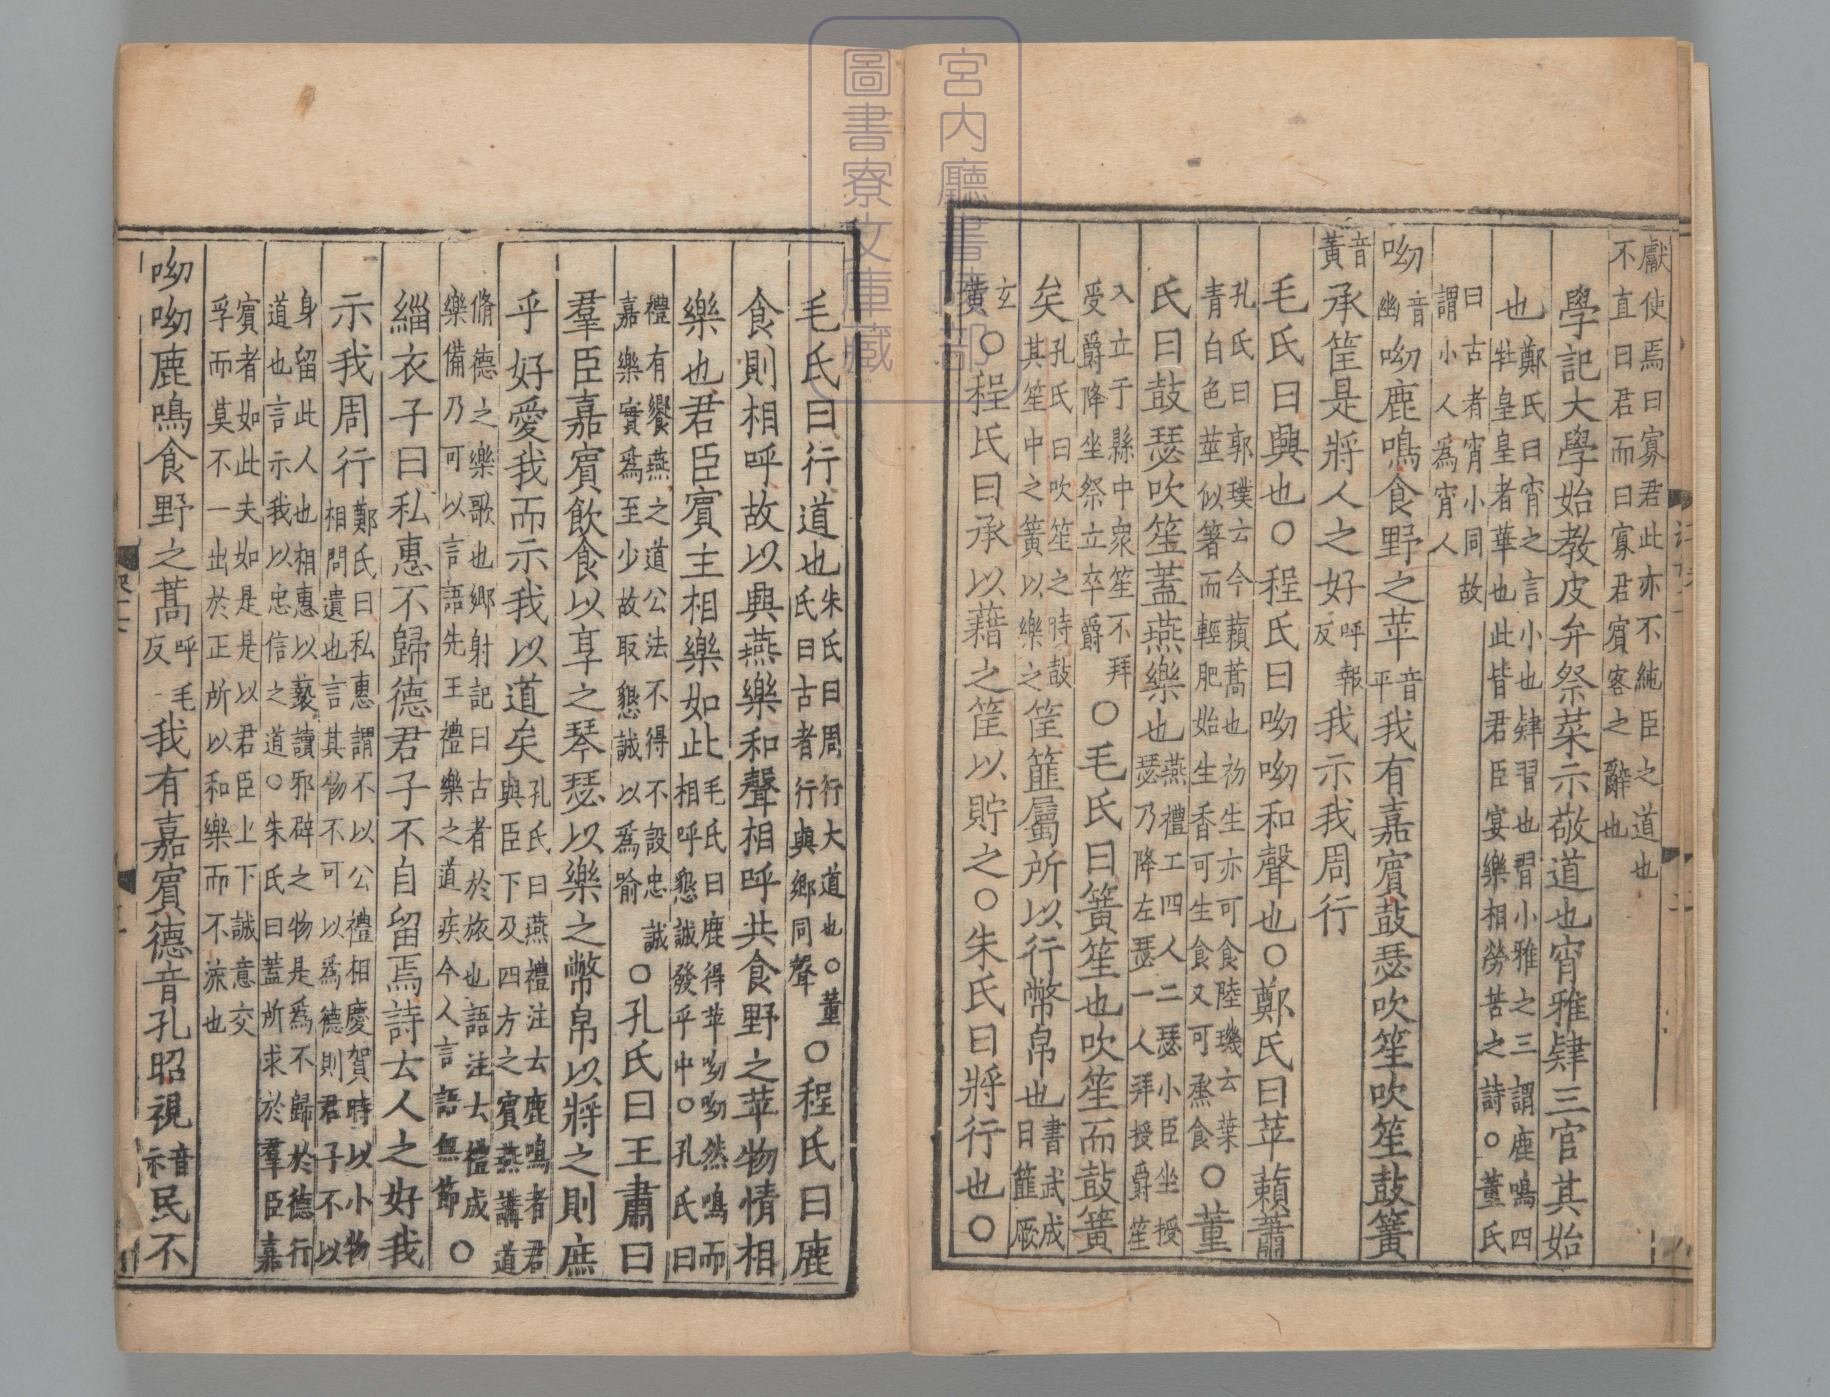 獻使焉曰寡君此亦不純臣之道也
不直曰君而曰寡君賓客之辭也
學記大學始教皮弁祭菜示敬道也宵雅肄三官其始
也鄭氏曰宵之言小也肄習也習小雅之三謂鹿鳴四
牡皇皇者華也此皆君臣宴樂相勞苦之詩○董氏
曰古者宵小同故
謂小人爲宵人
呦音幽呦鹿鳴食野之苹音平我有嘉賓鼓瑟吹笙吹笙鼓簧
音黃承筐是將人之好呼報反我示我周行
毛氏曰興也○程氏曰呦呦和聲也○鄭氏曰苹藾蕭
孔氏曰郭璞云今藾蒿也初生亦可食陸璣云葉
青白色莖似箸而輕肥始生香可生食又可烝食○董
氏曰鼓瑟吹笙蓋燕樂也燕禮工四人二瑟小臣坐授
瑟乃降左瑟一人拜授爵笙
入立于縣中衆笙不拜
受爵降坐祭立卒爵○毛氏曰簧笙也吹笙而鼓簧
矣孔氏曰吹笙之時鼓
其笙中之簧以樂之筐篚屬所以行幣帛也書武成
曰篚厥
玄
黃○程氏曰承以藉之筐以貯之○朱氏曰將行也○
毛氏曰行道也朱氏曰周行大道也○董
氏曰古者行與鄉同聲○程氏曰鹿
食則相呼故以興燕樂和聲相呼共食野之苹物情相
樂也君臣賓主相樂如此毛氏曰鹿得苹呦呦然鳴而
相呼懇誠發乎中○孔氏曰
禮有饗燕之道公法不得不設忠誠
嘉樂實爲至少故取懇誠以爲喻○孔氏曰王肅曰
羣臣嘉賓飲食以享之琴瑟以樂之幣帛以將之則庶
乎好愛我而示我以道矣孔氏曰燕禮注云鹿鳴者君
與臣下及四方之賓燕講道
脩德之樂歌也鄉射記曰古者於旅也語注云禮成
樂備乃可以言語先王禮樂之道疾今人言語無節○
緇衣子曰私惠不歸德君子不自留焉詩云人之好我
示我周行鄭氏曰私惠謂不以公禮相慶賀時以小物
相問遺也言其物不可以爲德則君子不以
身留此人也相惠以褻瀆邪辟之物是爲不歸於德行
道也言示我以忠信之道○朱氏曰蓋所求於羣臣嘉
賓者如此夫如是是以君臣上下誠意交
孚而莫不一出於正所以和樂而不流也
呦呦鹿鳴食野之蒿呼毛反我有嘉賓德音孔昭視音示民不
宮内廳書陵部
圖書寮文庫藏